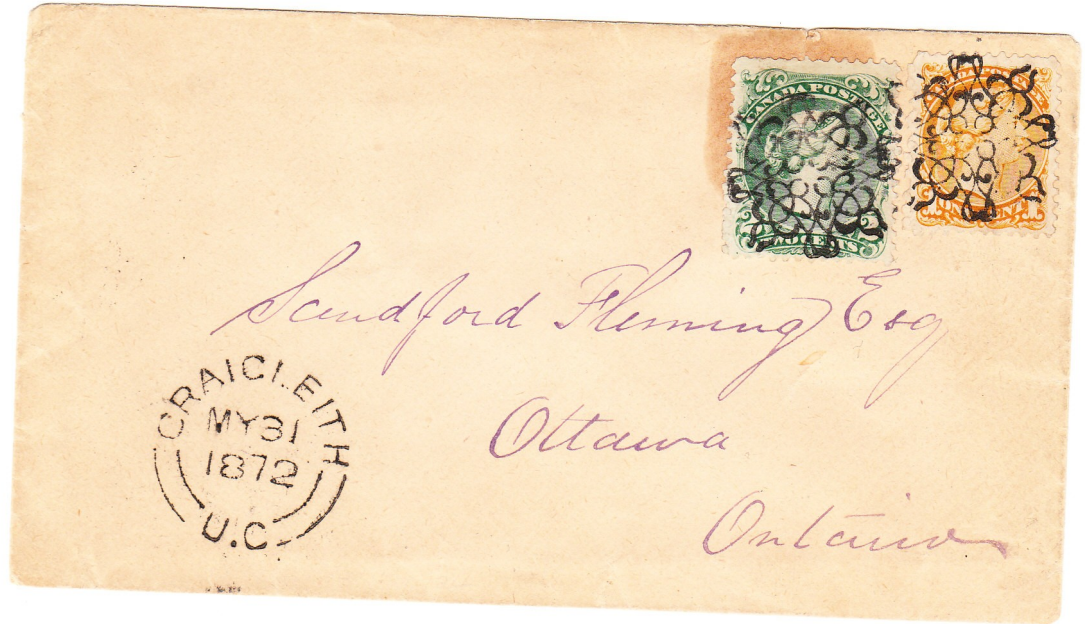 CANADA POSTAGE
TWO CENTS
ONE CENT
Sandford Fleming Esq
Ottawa
Ontario
CRAIGLEITH
MY 31
1872
U.C.